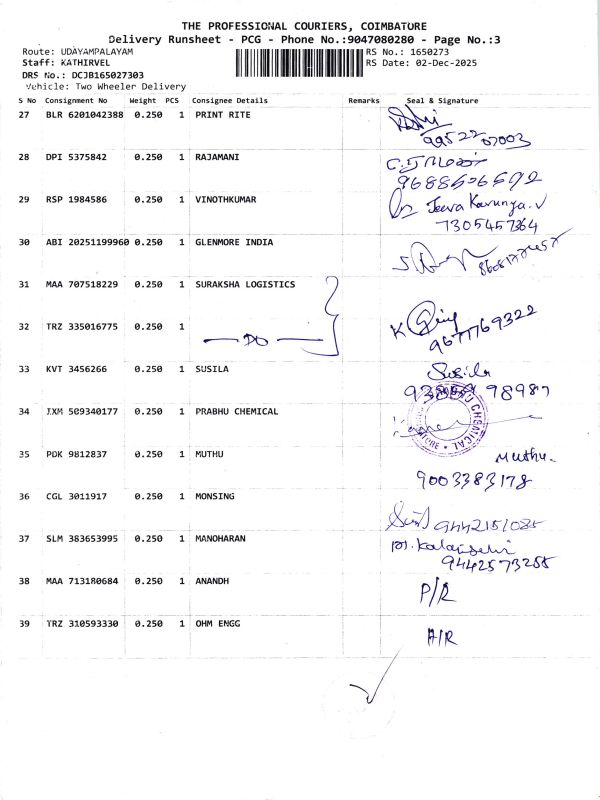 THE PROFESSIONAL COURIERS, COIMBATURE
Delivery Runsheet - PCG - Phone No.:9047080280 - Page No.:3
Route: UDAYAMPALAYAM
RS No.: 1650273
Staff: KATHIRVEL
RS Date: 02-Dec-2025
DRS No.: DCJB165027303
Vehicle: Two Wheeler Delivery
S No Consignment No Weight PCS Consignee Details Remarks Seal & Signature
27 BLR 6201042388 0.250 1 PRINT RITE
99522 07003
28 DPI 5375842 0.250 1 RAJAMANI
29 RSP 1984586 0.250 1 VINOTHKUMAR Jeeva Karunya.V
7305457364
30 ABI 20251199960 0.250 1 GLENMORE INDIA
31 MAA 707518229 0.250 1 SURAKSHA LOGISTICS
32 TRZ 335016775 0.250 1 DO K
9677769322
33 KVT 3456266 0.250 1 SUSILA Susila
98987
34 JXM 509340177 0.250 1 PRABHU CHEMICAL
CHEMICAL
35 PDK 9812837 0.250 1 MUTHU Muthu.
9003383178
36 CGL 3011917 0.250 1 MONSING
9442151085
37 SLM 383653995 0.250 1 MANOHARAN M. Kalaiselvi
9442573255
38 MAA 713180684 0.250 1 ANANDH P/R
39 TRZ 310593330 0.250 1 OHM ENGG A/R